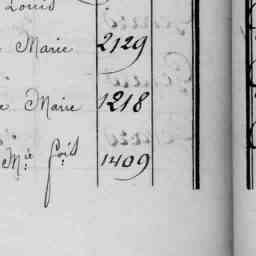 Louis
Marie 2129
e Marie 1218
Mie fois 1409